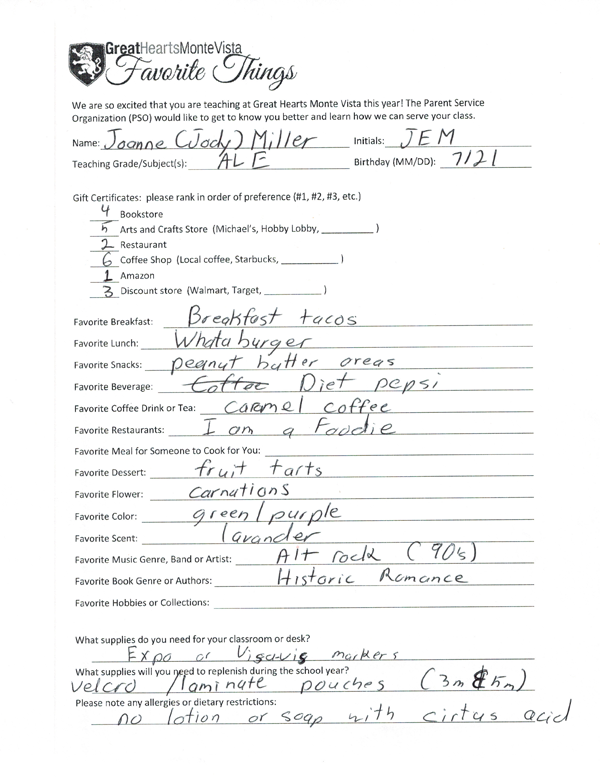 GreatHeartsMonteVista
Favorite Things
We are so excited that you are teaching at Great Hearts Monte Vista this year! The Parent Service
Organization (PSO) would like to get to know you better and learn how we can serve your class.
Name: Joanne (Jody) Miller Initials: JEM
Teaching Grade/Subject(s): ALE Birthday (MM/DD): 7/21
Gift Certificates: please rank in order of preference (#1, #2, #3, etc.)
4 Bookstore
5 Arts and Crafts Store (Michael's, Hobby Lobby, __________ )
2 Restaurant
6 Coffee Shop (Local coffee, Starbucks, __________ )
1 Amazon
3 Discount store (Walmart, Target, __________ )
Favorite Breakfast: Breakfast tacos
Favorite Lunch: Whataburger
Favorite Snacks: peanut butter oreos
Favorite Beverage: Diet pepsi
Favorite Coffee Drink or Tea: Carmel coffee
Favorite Restaurants: I am a Foodie
Favorite Meal for Someone to Cook for You:
Favorite Dessert: fruit tarts
Favorite Flower: carnations
Favorite Color: green/purple
Favorite Scent: lavander
Favorite Music Genre, Band or Artist: Alt rock (90s)
Favorite Book Genre or Authors: Historic Romance
Favorite Hobbies or Collections:
What supplies do you need for your classroom or desk?
Expo or Visavis markers
What supplies will you need to replenish during the school year?
velcro /laminate pouches (3m & 5m)
Please note any allergies or dietary restrictions:
no lotion or soap with cirtus acid